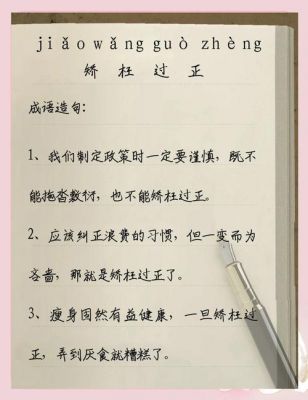 jiǎo wǎng guò zhèng
矫 枉 过 正
成语造句：
1、我们制定政策时一定要谨慎，既不
能拖沓敷衍，也不能矫枉过正。
2、应该纠正浪费的习惯，但一变而为
吝啬，那就是矫枉过正了。
3、瘦身固然有益健康，一旦矫枉过
正，弄到厌食就糟糕了。